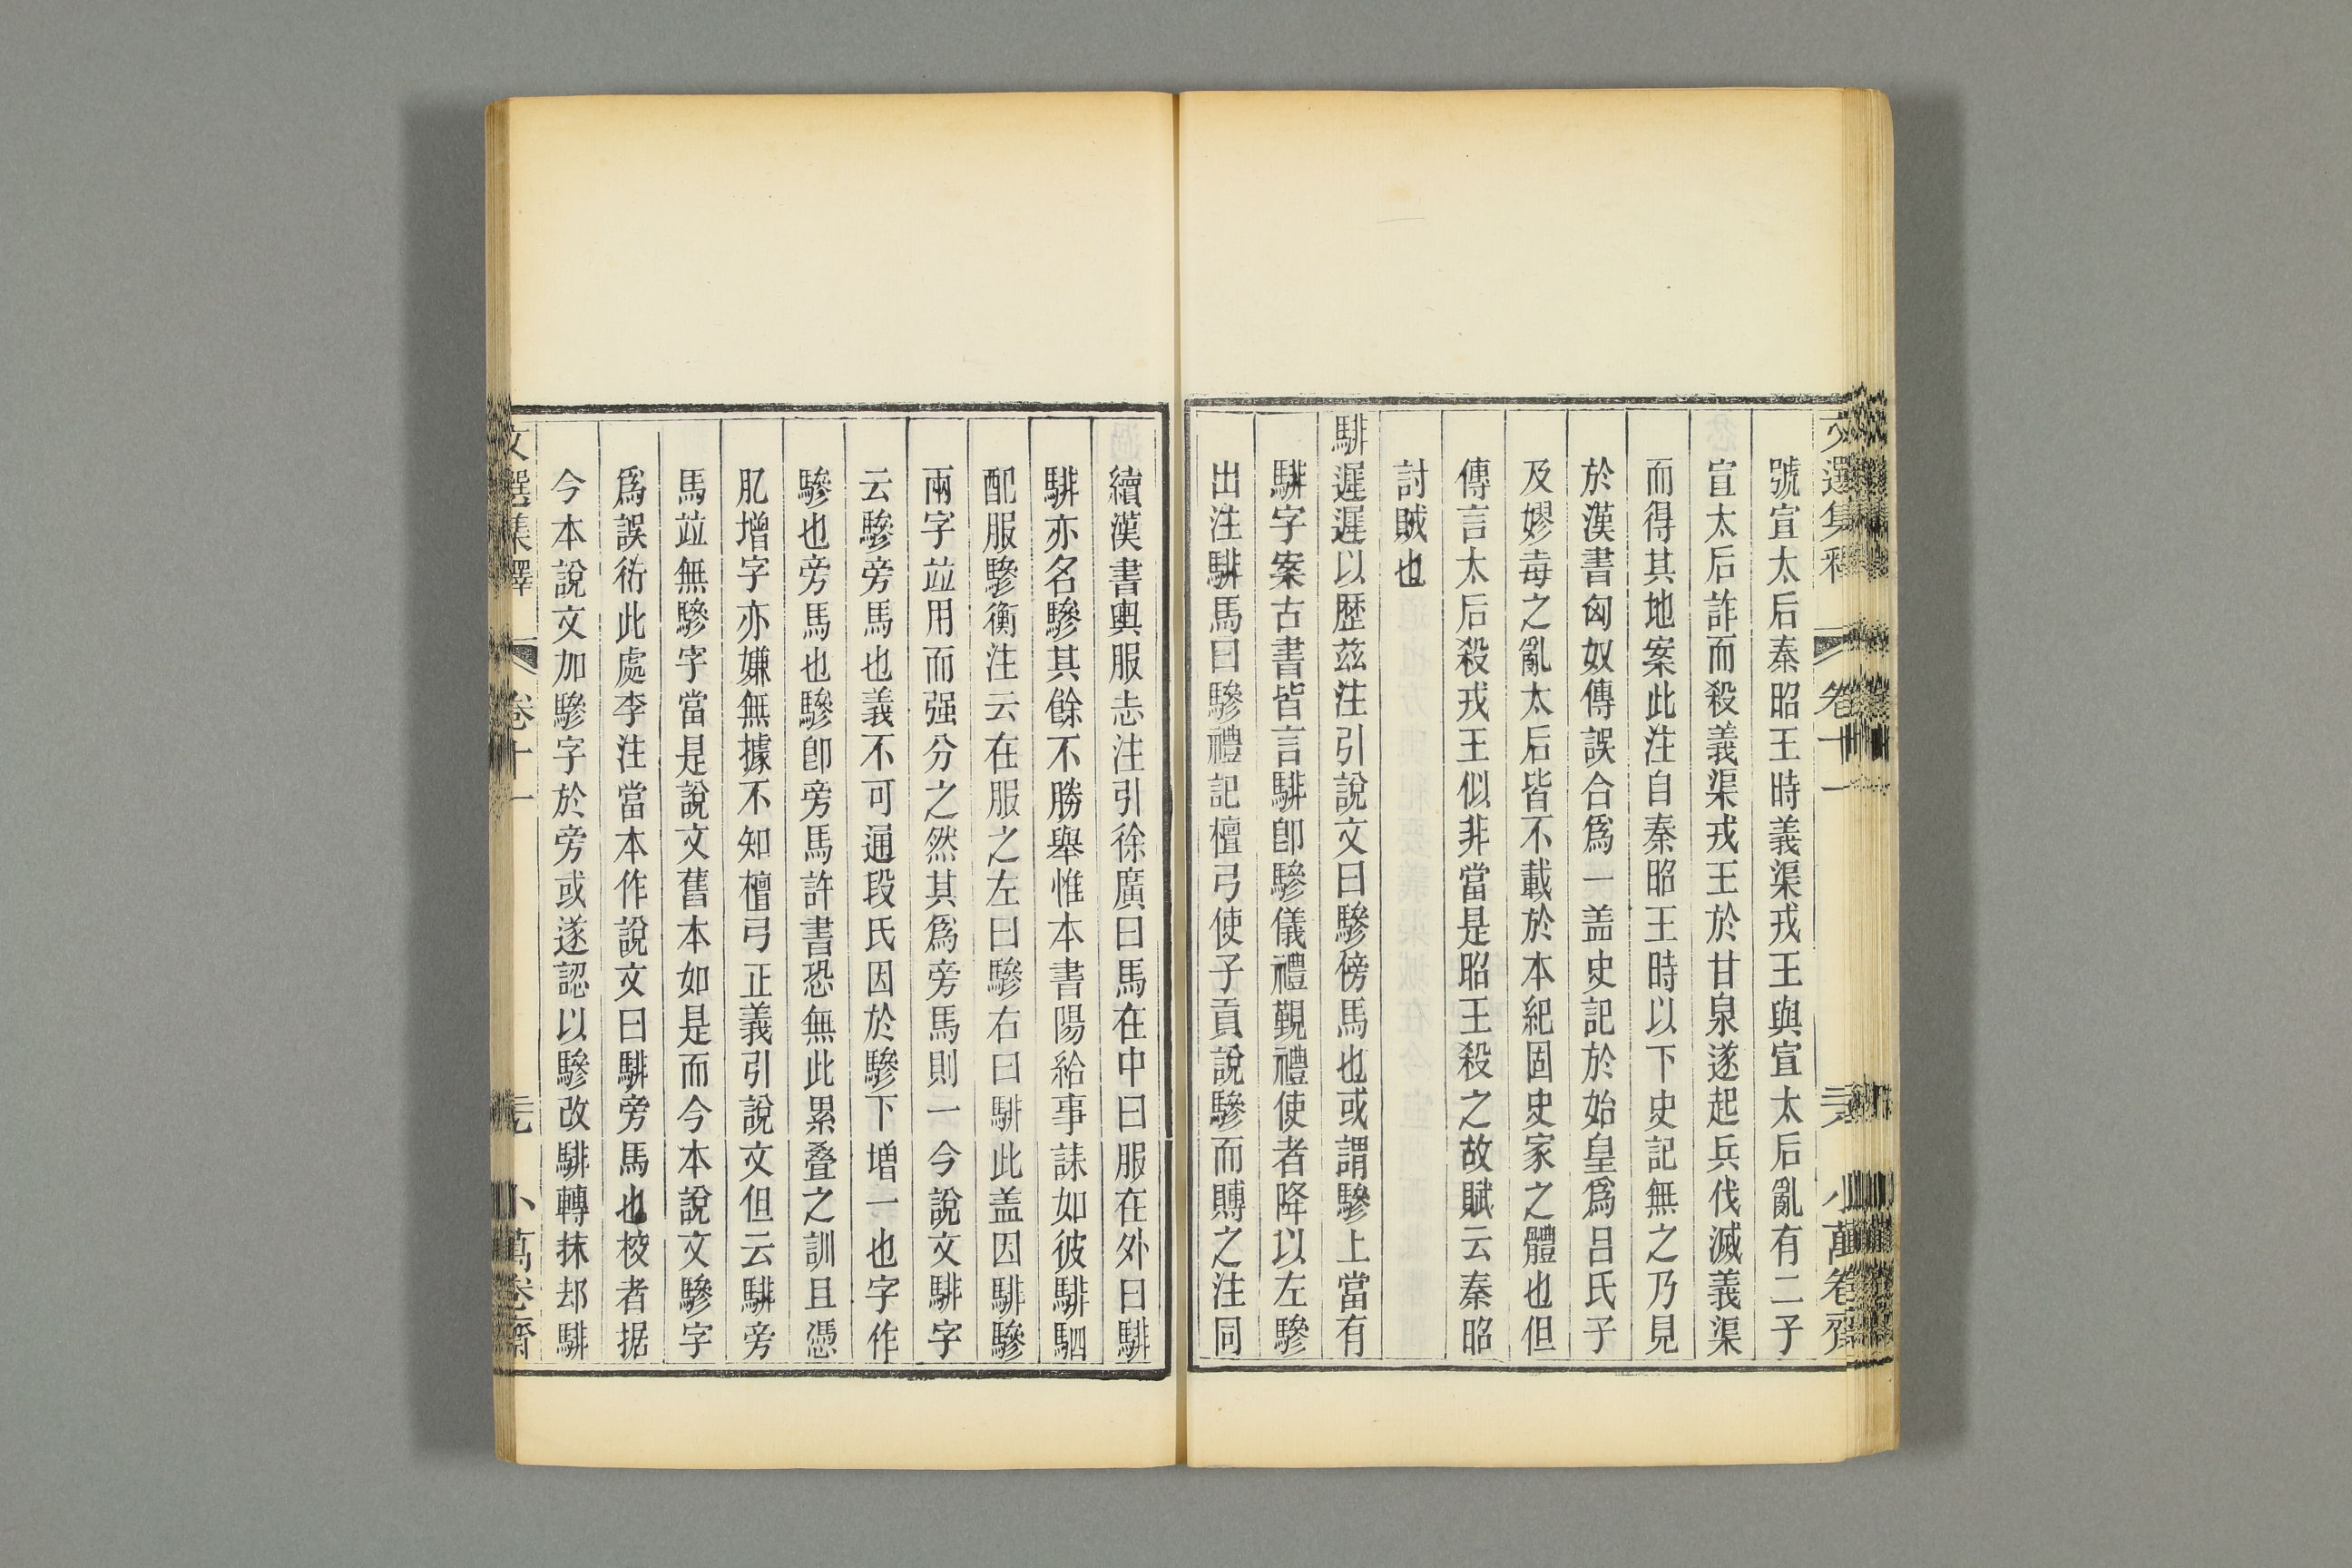 號宣太后秦昭王時義渠戎王與宣太后亂有二子
宣太后詐而殺義渠戎王於甘泉遂起兵伐滅義渠
而得其地案此注自秦昭王時以下史記無之乃見
於漢書匈奴傳誤合爲一盖史記於始皇爲呂氏子
及嫪毐之亂太后皆不載於本紀固史家之體也但
傳言太后殺戎王似非當是昭王殺之故賦云秦昭
討賊也
騑遲遲以歷兹注引說文曰驂傍馬也或謂驂上當有
騑字案古書皆言騑卽驂儀禮覲禮使者降以左驂
出注騑馬曰驂禮記檀弓使子貢說驂而賻之注同
續漢書輿服志注引徐廣曰馬在中曰服在外曰騑
騑亦名驂其餘不勝舉惟本書陽給事誄如彼騑駟
配服驂衡注云在服之左曰驂右曰騑此盖因騑驂
兩字竝用而强分之然其爲旁馬則一今說文騑字
云驂旁馬也義不可通段氏因於驂下增一也字作
驂也旁馬也驂卽旁馬許書恐無此累疊之訓且憑
肊增字亦嫌無據不知檀弓正義引說文但云騑旁
馬竝無驂字當是說文舊本如是而今本說文驂字
爲誤衍此處李注當本作說文曰騑旁馬也校者据
今本說文加驂字於旁或遂認以驂改騑轉抹却騑
文選集釋 卷十一 小萬卷齋